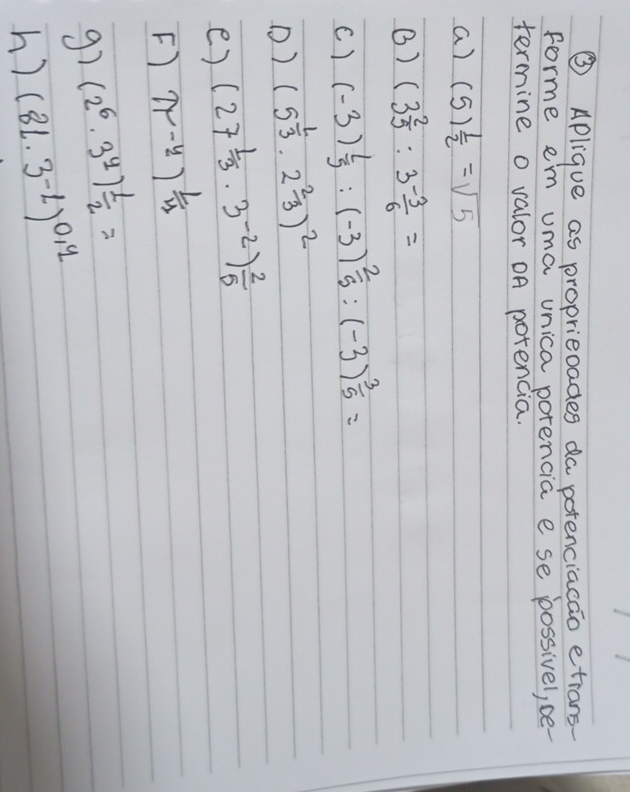 ③ Aplique as propriedades da potenciação e trans-
forme em uma unica potencia e se possivel, de-
termine o valor DA potencia.
a) (5)^1/2 = √5
B) (3^2/5 : 3^-3/6 =
c) (-3)^1/5 : (-3)^2/5 : (-3)^3/5 =
D) (5^1/3 . 2^2/3)^2
e) (27^1/3 . 3^-2)^2/5
F) π^-4)^1/4
g) (2^6 . 3^4)^1/2 =
h) (81 . 3^-1)^0,4